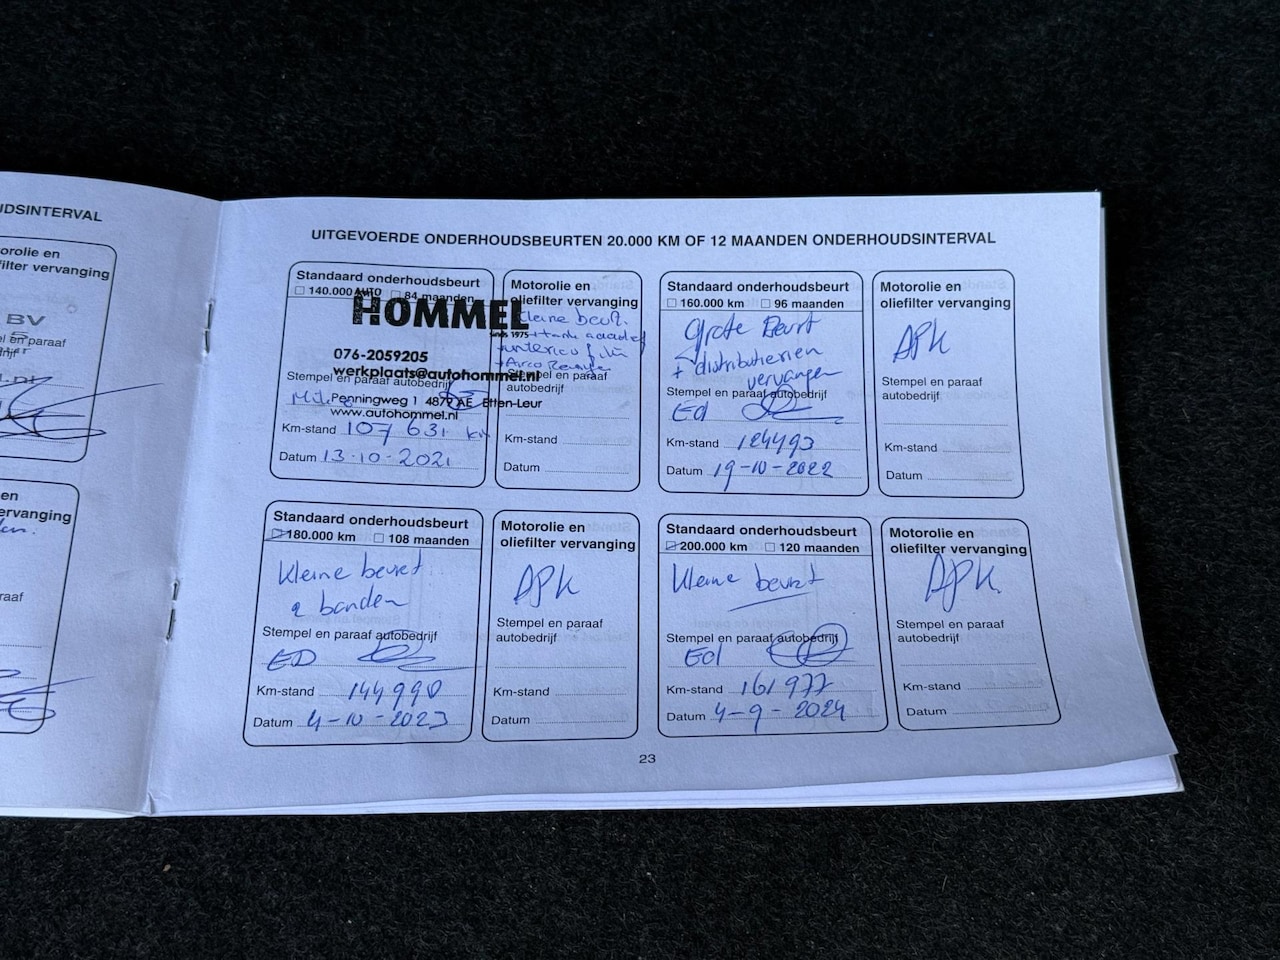 UDSINTERVAL
otorolie en
filter vervanging
BV
en paraaf
drijf
en
ervanging
raaf
UITGEVOERDE ONDERHOUDSBEURTEN 20.000 KM OF 12 MAANDEN ONDERHOUDSINTERVAL
Standaard onderhoudsbeurt
140.000 84 maanden
AUTO
HOMMEL
sinds 1975
076-2059205
werkplaats@autohommel.nl
Stempel en paraaf autobedrijf
Penningweg 1 4879 AE Etten-Leur
www.autohommel.nl
Km-stand 107 631 km
Datum 13-10-2021
Motorolie en
oliefilter vervanging
kleine beurt.
interieur filter
+ Airco
Stempel en paraaf
autobedrijf
Km-stand
Datum
Standaard onderhoudsbeurt
160.000 km 96 maanden
Grote Beurt
+ distributieriem
vervangen
Stempel en paraaf autobedrijf
Ed
Km-stand 124493
Datum 19-10-2022
Motorolie en
oliefilter vervanging
APK
Stempel en paraaf
autobedrijf
Km-stand
Datum
Standaard onderhoudsbeurt
180.000 km 108 maanden
Kleine beurt
2 banden
Stempel en paraaf autobedrijf
ED
Km-stand 144990
Datum 4-10-2023
Motorolie en
oliefilter vervanging
APK
Stempel en paraaf
autobedrijf
Km-stand
Datum
Standaard onderhoudsbeurt
200.000 km 120 maanden
Kleine beurt
Stempel en paraaf autobedrijf
Ed
Km-stand 161977
Datum 4-9-2024
Motorolie en
oliefilter vervanging
APK.
Stempel en paraaf
autobedrijf
Km-stand
Datum
23